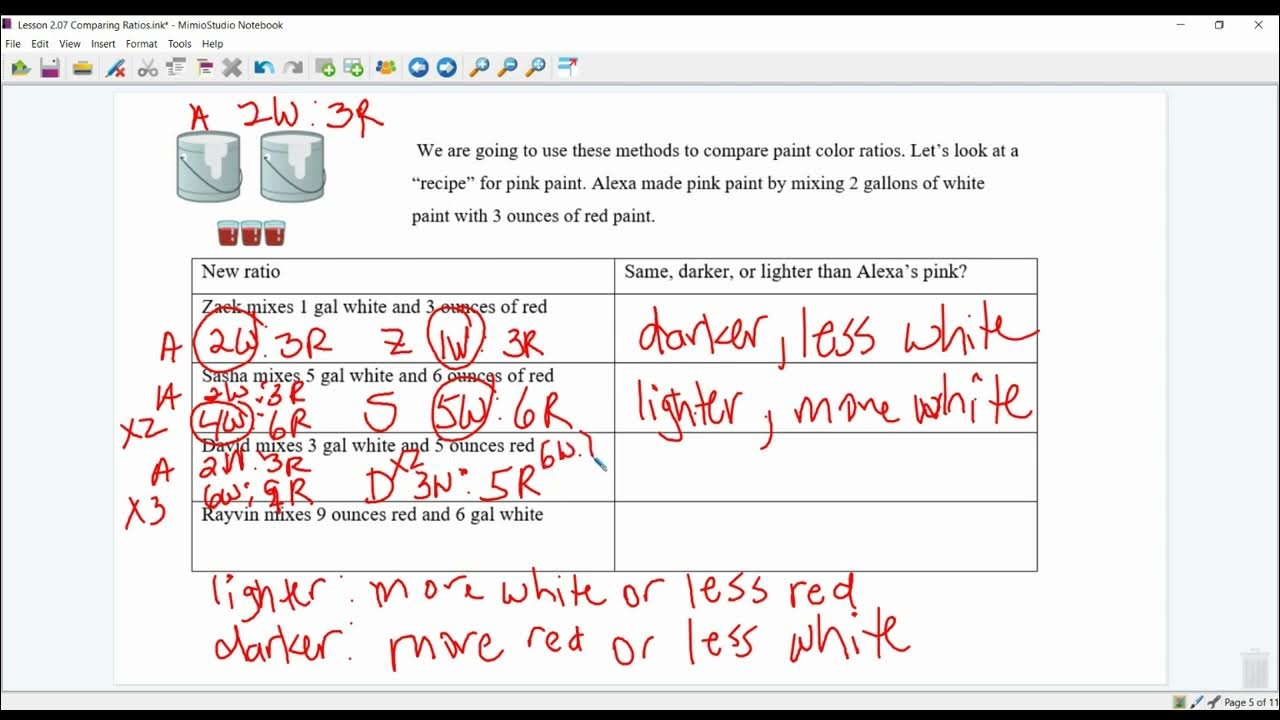 Lesson 2.07 Comparing Ratios.ink* - MimioStudio Notebook
File Edit View Insert Format Tools Help
A 2W:3R
We are going to use these methods to compare paint color ratios. Let's look at a
“recipe” for pink paint. Alexa made pink paint by mixing 2 gallons of white
paint with 3 ounces of red paint.
New ratio Same, darker, or lighter than Alexa's pink?
Zack mixes 1 gal white and 3 ounces of red
A 2W:3R Z 1W:3R darker, less white
Sasha mixes 5 gal white and 6 ounces of red
A 2W:3R
X2 4W:6R S 5W:6R lighter, more white
David mixes 3 gal white and 5 ounces red 6W:
A 2W:3R X2
X3 6W:9R D 3W:5R
Rayvin mixes 9 ounces red and 6 gal white
lighter: more white or less red
darker: more red or less white
Page 5 of 11